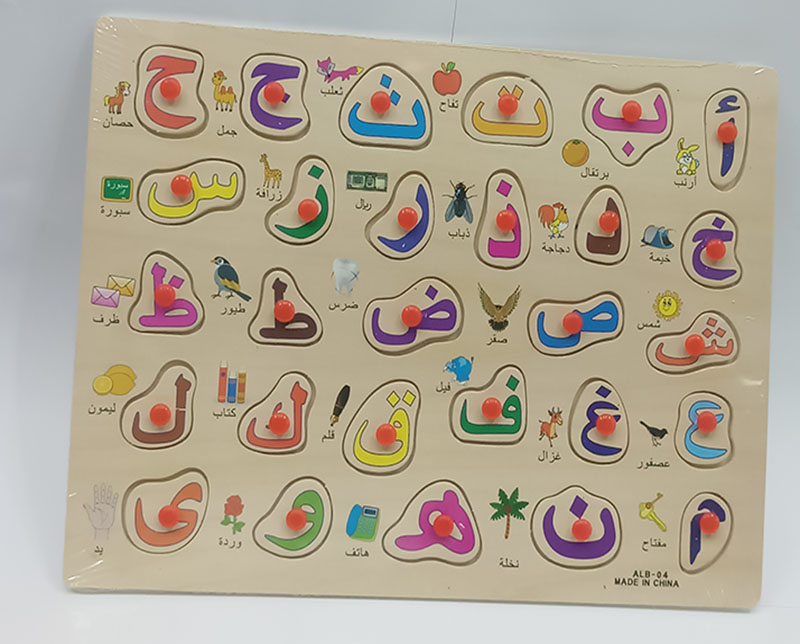 أ أرنب
ب برتقال
ت تفاح
ث ثعلب
ج جمل
ح حصان
خ خيمة
د دجاجة
ذ ذباب
ر ريال
ز زرافة
س سبورة
سبورة
ش شمس
ص صقر
ض ضرس
ط طيور
ظ ظرف
ع عصفور
غ غزال
ف فيل
ق قلم
ك كتاب
ل ليمون
م مفتاح
ن نخلة
هـ هاتف
و وردة
ى يد
ALB-04
MADE IN CHINA